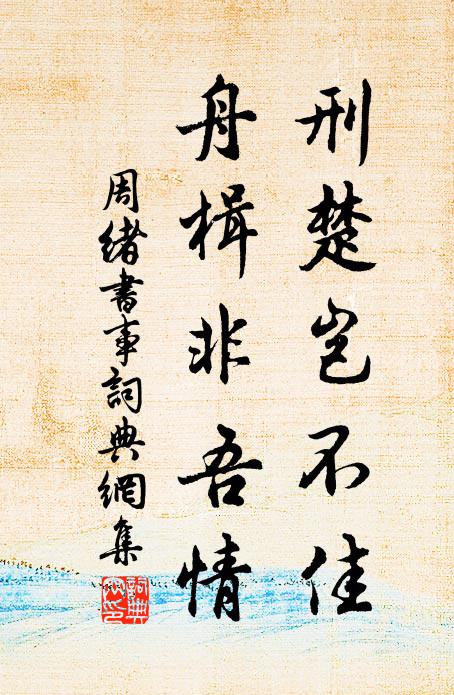 刑楚岂不佳
舟楫非吾情
周绪書事詞典網集